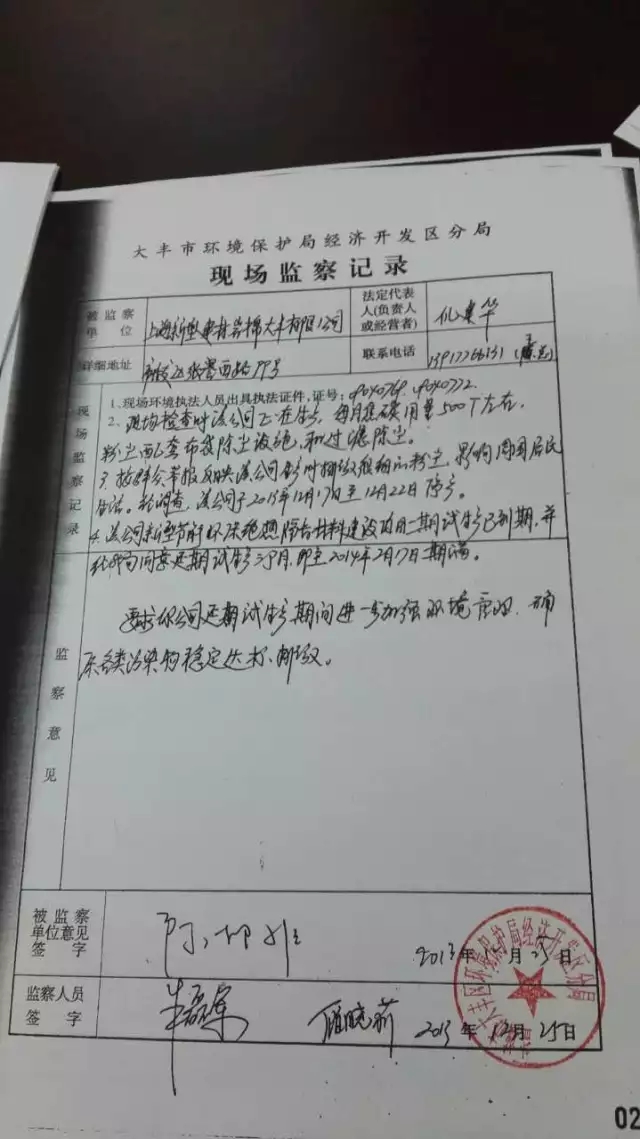 大丰市环境保护局经济开发区分局
现场监察记录
被监察单位 上海新型建材岩棉大丰有限公司 法定代表人(负责人或经营者) 华
详细地址 开发区张謇西路79号 联系电话 13917766131
现场监察记录
1、现场环境执法人员出具执法证件,证号:9040769、9040772.
2、现场检查时该公司正在生产,每月焦碳用量500T左右,
粉尘配套布袋除尘设施,和过滤除尘。
3、据群众举报反映该公司生产时排放粉尘,影响周围居民
生活。经调查,该公司于2013年12月17日至12月22日停产。
4、该公司新型节能环保绝热隔音材料建设项目二期试生产已到期,并
经我局同意延期试生产三个月,即至2014年2月17日期满。
监察意见
要求你公司延期试生产期间进一步加强环境管理,确
保各类污染物稳定达标排放。
被监察单位意见签字 2013年12月25日
监察人员签字 2013年12月25日
大丰区环境保护局经济开发区分局
02